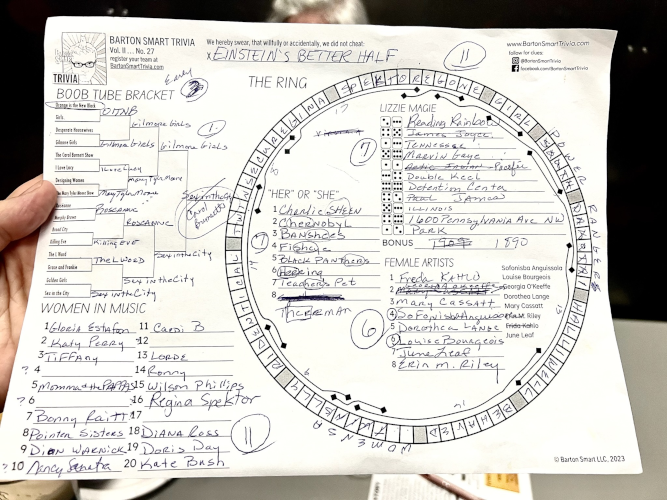 BARTON SMART TRIVIA
Vol. II ... No. 27
register your team at
BartonSmartTrivia.com
TRIVIA
We hereby swear, that willfully or accidentally, we did not cheat:
x EINSTEIN'S BETTER HALF
11
www.BartonSmartTrivia.com
follow for clues:
@BartonSmartTrivia
facebook.com/BartonSmartTrivia
Early
3
BOOB TUBE BRACKET
Orange is the New Black
Girls
Desperate Housewives
Gilmore Girls
The Carol Burnett Show
I Love Lucy
Designing Women
The Mary Tyler Moore Show
Roseanne
Murphy Brown
Broad City
Killing Eve
The L Word
Grace and Frankie
Golden Girls
Sex in the City
OITNB
Gilmore Girls
I Love Lucy
Mary Tyler Moore
Roseanne
Killing Eve
The L Word
Sex in the City
Gilmore Girls
Mary Tyler Moore
ROSEANNE
Sex in the City
Gilmore Girls
Sex in the City
Sex in the City
Carol Burnett
1
THE RING
SPEKTOR
EGONE GIRL
POWER RANGERS
HALLIWELL
MOMENSA
IDENTICAL TWINS
7
"HER" OR "SHE"
1 Charlie SHEEN
2 Chernobyl
3 Banshees
4 Fisher
5 BLACK PANTHERS
6 Herring
7 Teachers Pet
8
Theremen
7
LIZZIE MAGIE
Reading Rainbow
James Joyce
Tennessee
Marvin Gaye
Poofer
Double Keel
Detention Centa
Paul James
ILLINOIS
1600 Pennsylvania Ave NW
PARK
BONUS 1904 1890
FEMALE ARTISTS
1 Freda KAHLO
2
3 Mary Cassatt
4 SofonisbAnguissola
5 Dorothea Lange
6 Louise Bourgeois
7 June Leaf
8 Erin M. Riley
6
Sofanisba Anguissola
Louise Bourgeois
Georgia O'Keeffe
Dorothea Lange
Mary Cassatt
Erin M. Riley
Frida Kahlo
June Leaf
WOMEN IN MUSIC
1 Gloria Estafan
2 Katy Perry
3 TIFFANY
? 4
5 Momma & the PAPPAS
? 6
7 Bonny Raitt
8 Pointen Sisters
9 Dion WARNICK
? 10 Nancy Senatra
11 Cardi B
12
13 LORDE
14 Ronny
15 Wilson Phillips
16 Regina Spektor
17
18 DIANA ROSS
19 Doris Day
20 Kate Bush
11
© Barton Smart LLC, 2023